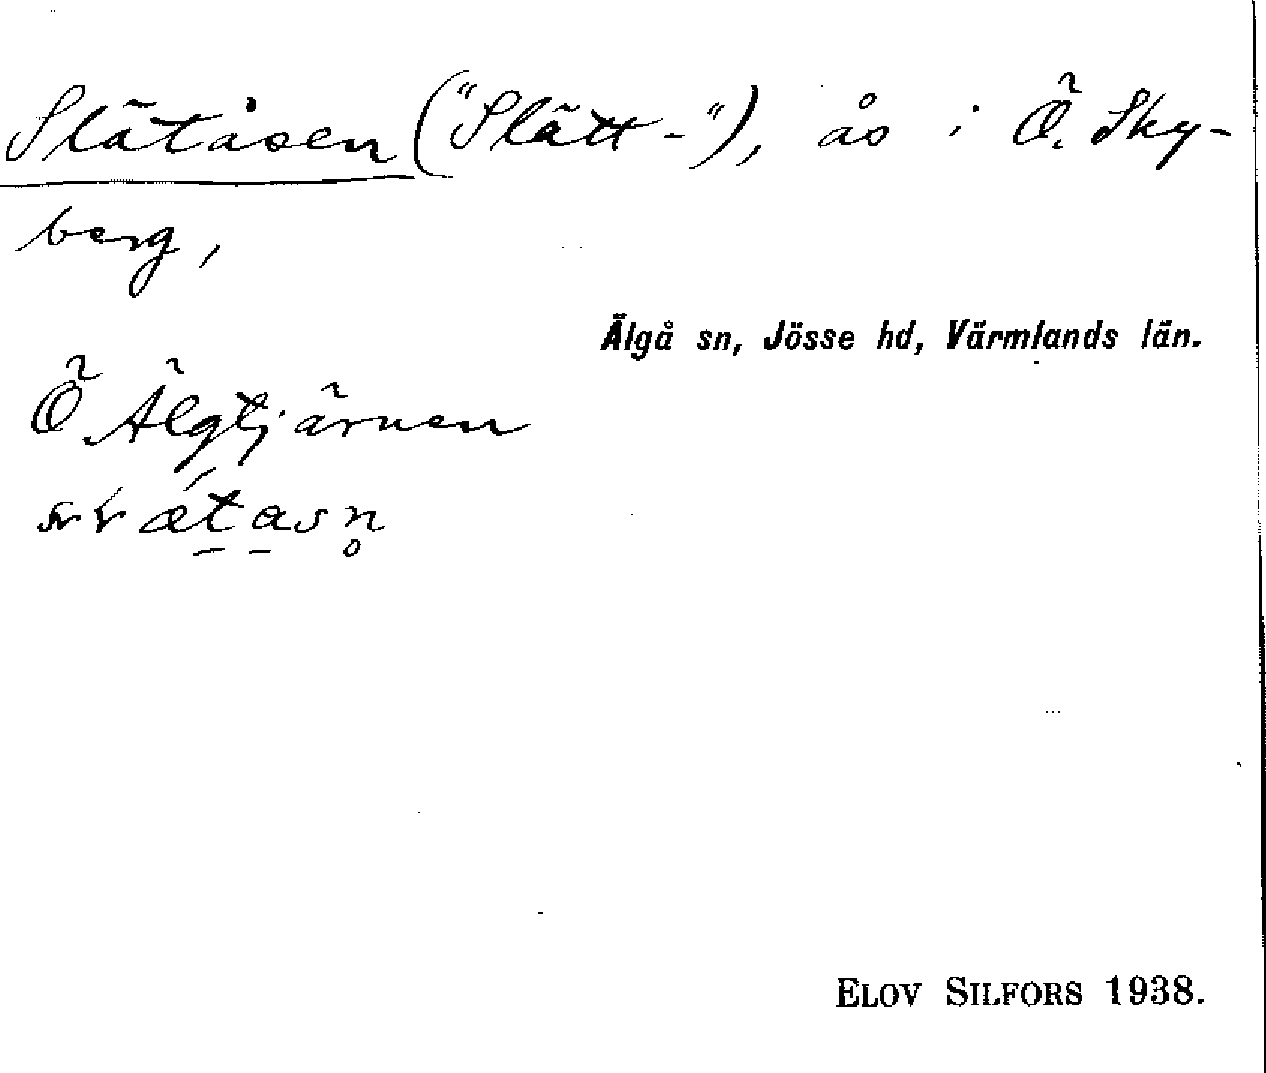 Slätåsen ("Slätt-"), ås i Ö. Sky-
berg,
Älgå sn, Jösse hd, Värmlands län.
Ö. Älgtjärnen
ELOV SILFORS 1938.